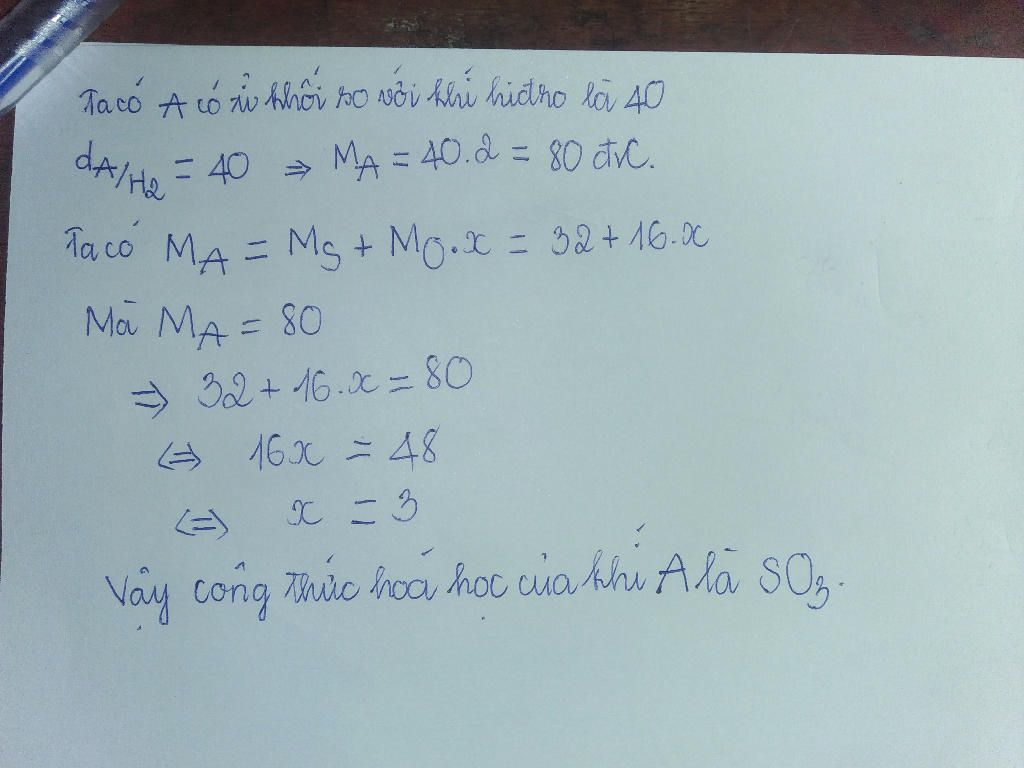 Ta có A có tỉ khối so với khí hiđro là 40
dA/H2 = 40 ⇒ MA = 40.2 = 80 đvC.
Ta có MA = MS + MO.x = 32 + 16.x
Mà MA = 80
⇒ 32 + 16.x = 80
⇔ 16x = 48
⇔ x = 3
Vậy công thức hoá học của khí A là SO3.